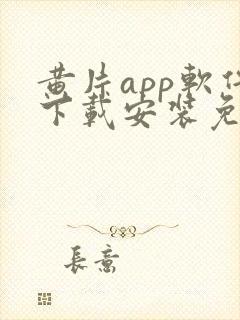 黄片app軟件
下載安装免
長意